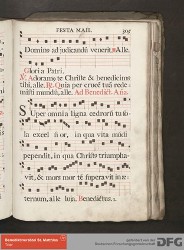 FESTA MAII. 305
Domino ad judicandū venerit, Alle.
Gloria Patri.
℣. Adoramus te Christe & benedicimus
tibi, alle. ℟. Quia per crucē tuā rede-
misti mundū, alle. Ad Benedict. Aña.
SUper omnia ligna cedrorū tu so-
la excelsior, in qua vita mūdi
pependit, in qua Christ9 triumpha-
vit, & mors mortē superavit in æ-
ternum, alleluja. Benedictus.
Benediktinerabtei St. Matthias
Trier
DFG